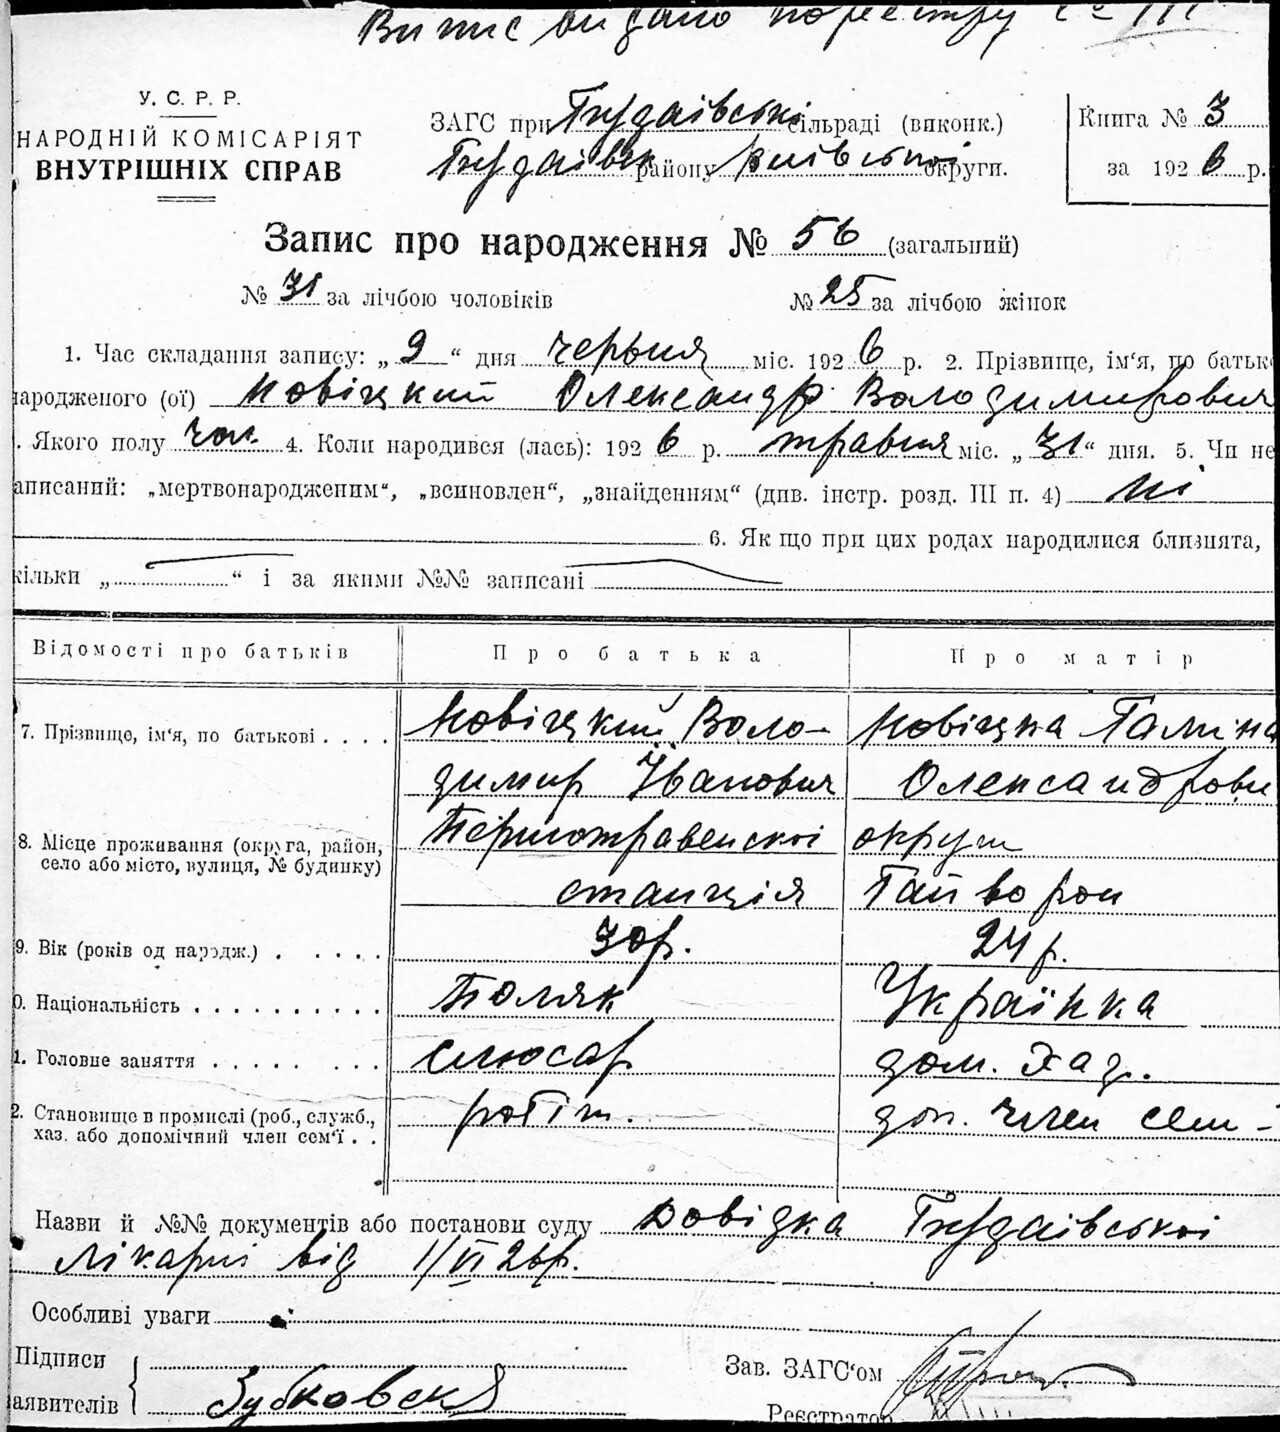 Випис видано по реєстру
У. С. Р. Р.
НАРОДНІЙ КОМІСАРІЯТ
ВНУТРІШНІХ СПРАВ
ЗАГС при Грудаївські сільраді (виконк.)
Грудаївск району Київської округи.
Книга № 3
за 1926 р.
Запис про народження № 56 (загальний)
№ 31 за лічбою чоловіків № 25 за лічбою жінок
1. Час складання запису: „9“ дня червня міс. 1926 р. 2. Прізвище, ім‘я, по батьк
народженого (ої) Новіцкий Олександр Володимирович
. Якого полу чол. 4. Коли народився (лась): 1926 р. травня міс. „31“ дня. 5. Чи не
аписаний: „мертвонародженим“, „всиновлен“, „знайденням“ (див. інстр. розд. III п. 4) ні
6. Як що при цих родах народилися близнята,
кільки „ “ і за якими №№ записані
Відомості про батьків Про батька Про матір
7. Прізвище, ім‘я, по батькові . . . . Новіцкий Воло- Новіцка Галіна
димир Іванович Олександрови
8. Місце проживання (округа, район, Першотравенскої округи
село або місто, вулиця, № будинку) станція Гайворон
9. Вік (років од народж.) . . . . . 30 р. 24 р.
0. Національність . . . . . . . . . . Поляк Українка
1. Головне заняття . . . . . . . . слюсар дом. хаз.
2. Становище в промислі (роб., служб., робіт. доп. член сем-
хаз. або допомічний член сем‘ї . .
Назви й №№ документів або постанови суду Довідка Грудаївської
лікарні від 1/VI 26 р.
Особливі уваги
Підписи
аявителів Зубковскя
Зав. ЗАГС‘ом
Реєстратор